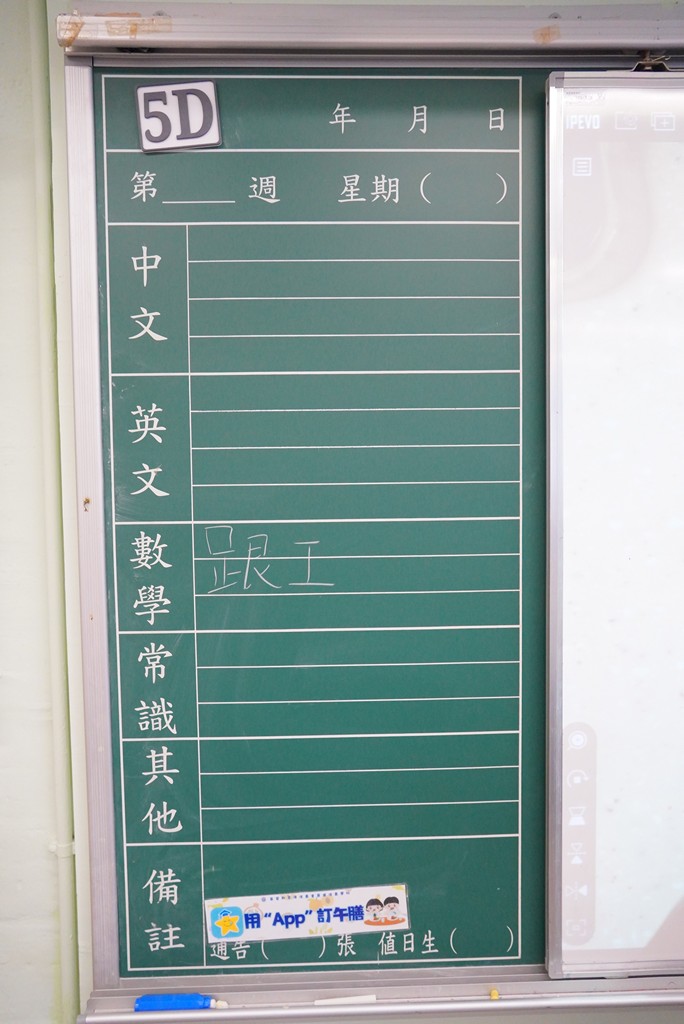 5D 年 月 日
第____週 星期（ ）
中文
英文
數學 跟工
常識
其他
備註
用“App”訂午膳
通告（ ）張 值日生（ ）
IPEVO